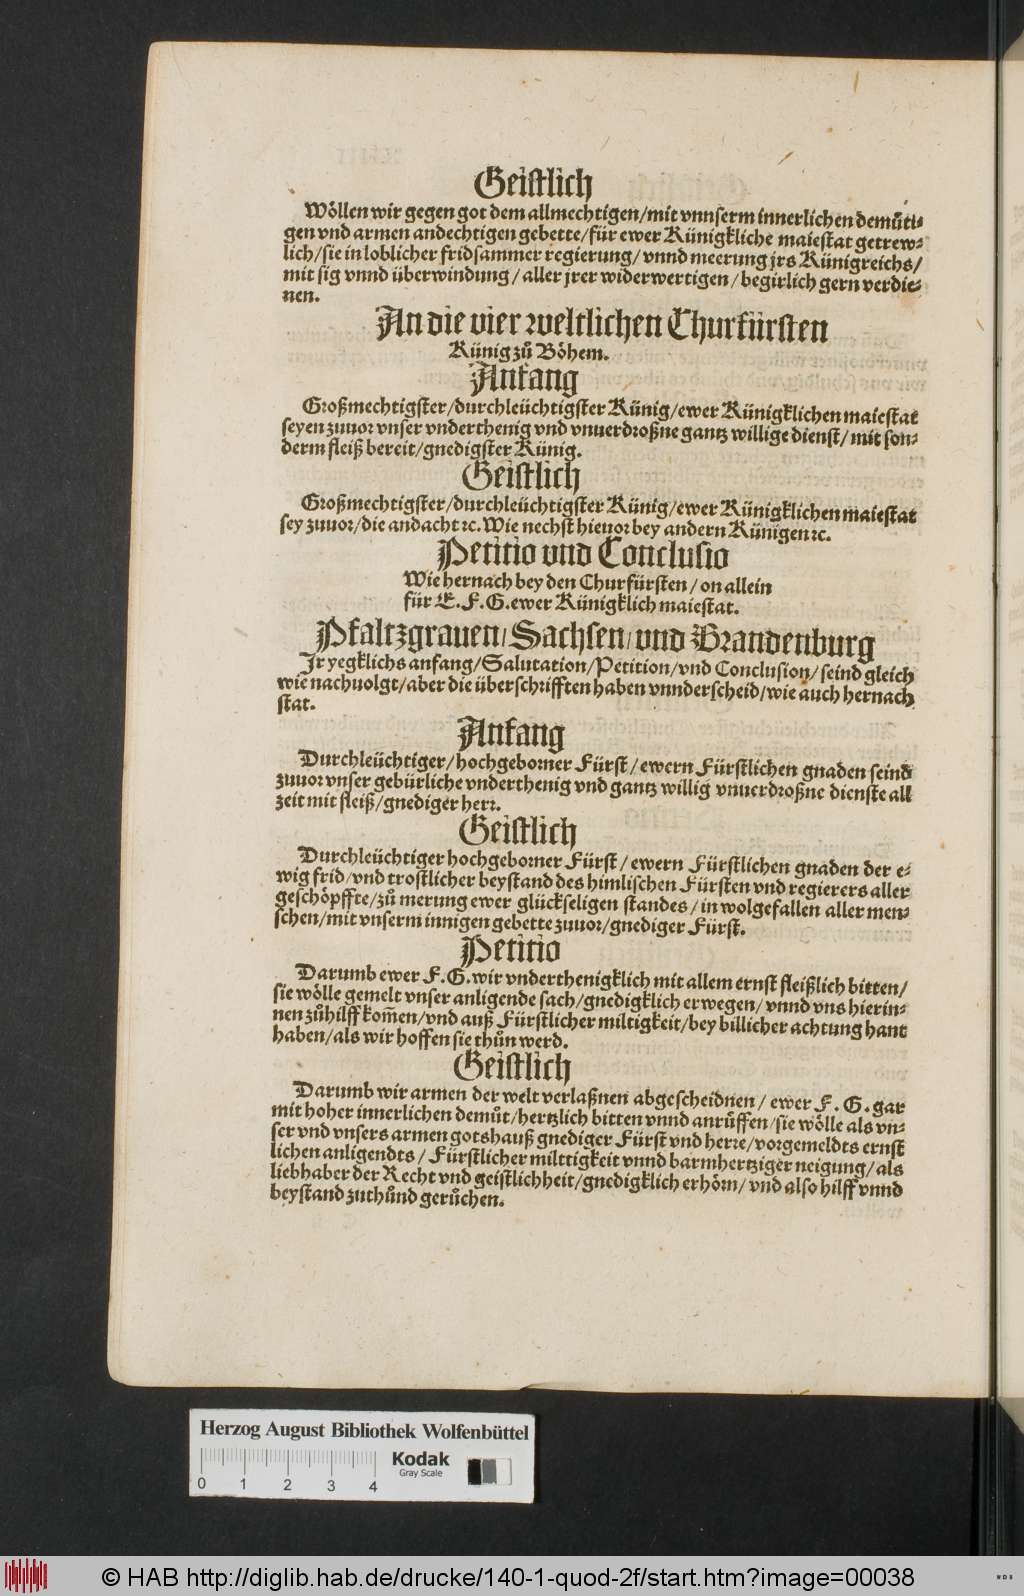 Geistlich
Wöllen wir gegen got dem allmechtigen/mit vnnserm innerlichen demüti-
gen vnd armen andechtigen gebette/für ewer Künigkliche maiestat getrew-
lich/sie in loblicher fridsammer regierung/vnnd meerung jrs Künigreichs/
mit sig vnnd überwindung/aller jrer widerwertigen/begirlich gern verdie-
nen.
An die vier weltlichen Churfürsten
Künig zů Böhem.
Anfang
Großmechtigster/durchleüchtigster Künig/ewer Künigklichen maiestat
seyen zuuor vnser vnderthenig vnd vnuerdroßne gantz willige dienst/mit son-
derm fleiß bereit/gnedigster Künig.
Geistlich
Großmechtigster/durchleüchtigster Künig/ewer Künigklichen maiestat
sey zuuor/die andacht ꝛc. Wie nechst hieuor bey andern Künigen ꝛc.
Petitio vnd Conclusio
Wie hernach bey den Churfürsten/on allein
für E. F. G. ewer Künigklich maiestat.
Pfaltzgrauen/Sachsen/vnd Brandenburg
Jr yegklichs anfang/Salutation/Petition/vnd Conclusion/seind gleich
wie nachuolgt/aber die überschrifften haben vnnderscheid/wie auch hernach
stat.
Anfang
Durchleüchtiger/hochgeborner Fürst/ewern Fürstlichen gnaden seind
zuuor vnser gebürliche vnderthenig vnd gantz willig vnuerdroßne dienste all
zeit mit fleiß/gnediger herr.
Geistlich
Durchleüchtiger hochgeborner Fürst/ewern Fürstlichen gnaden der e-
wig frid/vnd trostlicher beystand des himlischen Fürsten vnd regierers aller
geschöpffte/zů merung ewer glückseligen standes/in wolgefallen aller men-
schen/mit vnserm innigen gebette zuuor/gnediger Fürst.
Petitio
Darumb ewer F. G. wir vnderthenigklich mit allem ernst fleißlich bitten/
sie wölle gemelt vnser anligende sach/gnedigklich erwegen/vnnd vns hierin-
nen zůhilff kom̃en/vnd auß Fürstlicher miltigkeit/bey billicher achtung hant
haben/als wir hoffen sie thůn werd.
Geistlich
Darumb wir armen der welt verlaßnen abgescheidnen/ewer F. G. gar
mit hoher innerlichen demůt/hertzlich bitten vnnd anrůffen/sie wölle als vn-
ser vnd vnsers armen gotshauß gnediger Fürst vnd herre/vorgemeldts ernst
lichen anligendts/Fürstlicher milttigkeit vnnd barmhertziger neigung/als
liebhaber der Recht vnd geistlichheit/gnedigklich erhörn/vnd also hilff vnnd
beystand zuthůnd gerůchen.
Herzog August Bibliothek Wolfenbüttel
Kodak
Gray Scale
0 1 2 3 4
© HAB http://diglib.hab.de/drucke/140-1-quod-2f/start.htm?image=00038